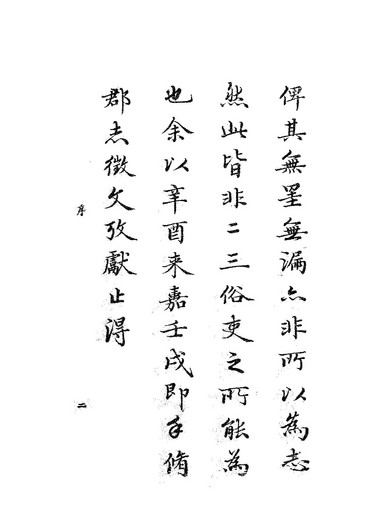 俾其無罣無漏亦非所以為志
然此皆非二三俗吏之所能為
也余以辛酉来嘉壬戌即手脩
郡志徵文攷獻止得
序
二